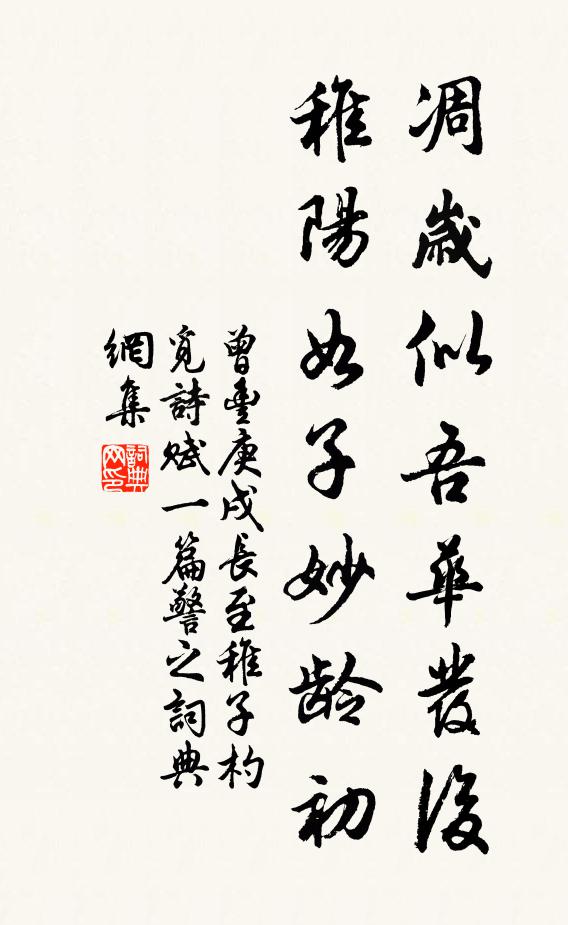 凋歲似吾華發後
稚陽如子妙齡初
曾豐庚戌長至稚子杓
覓詩賦一篇警之詞典
網集
詞典
网印